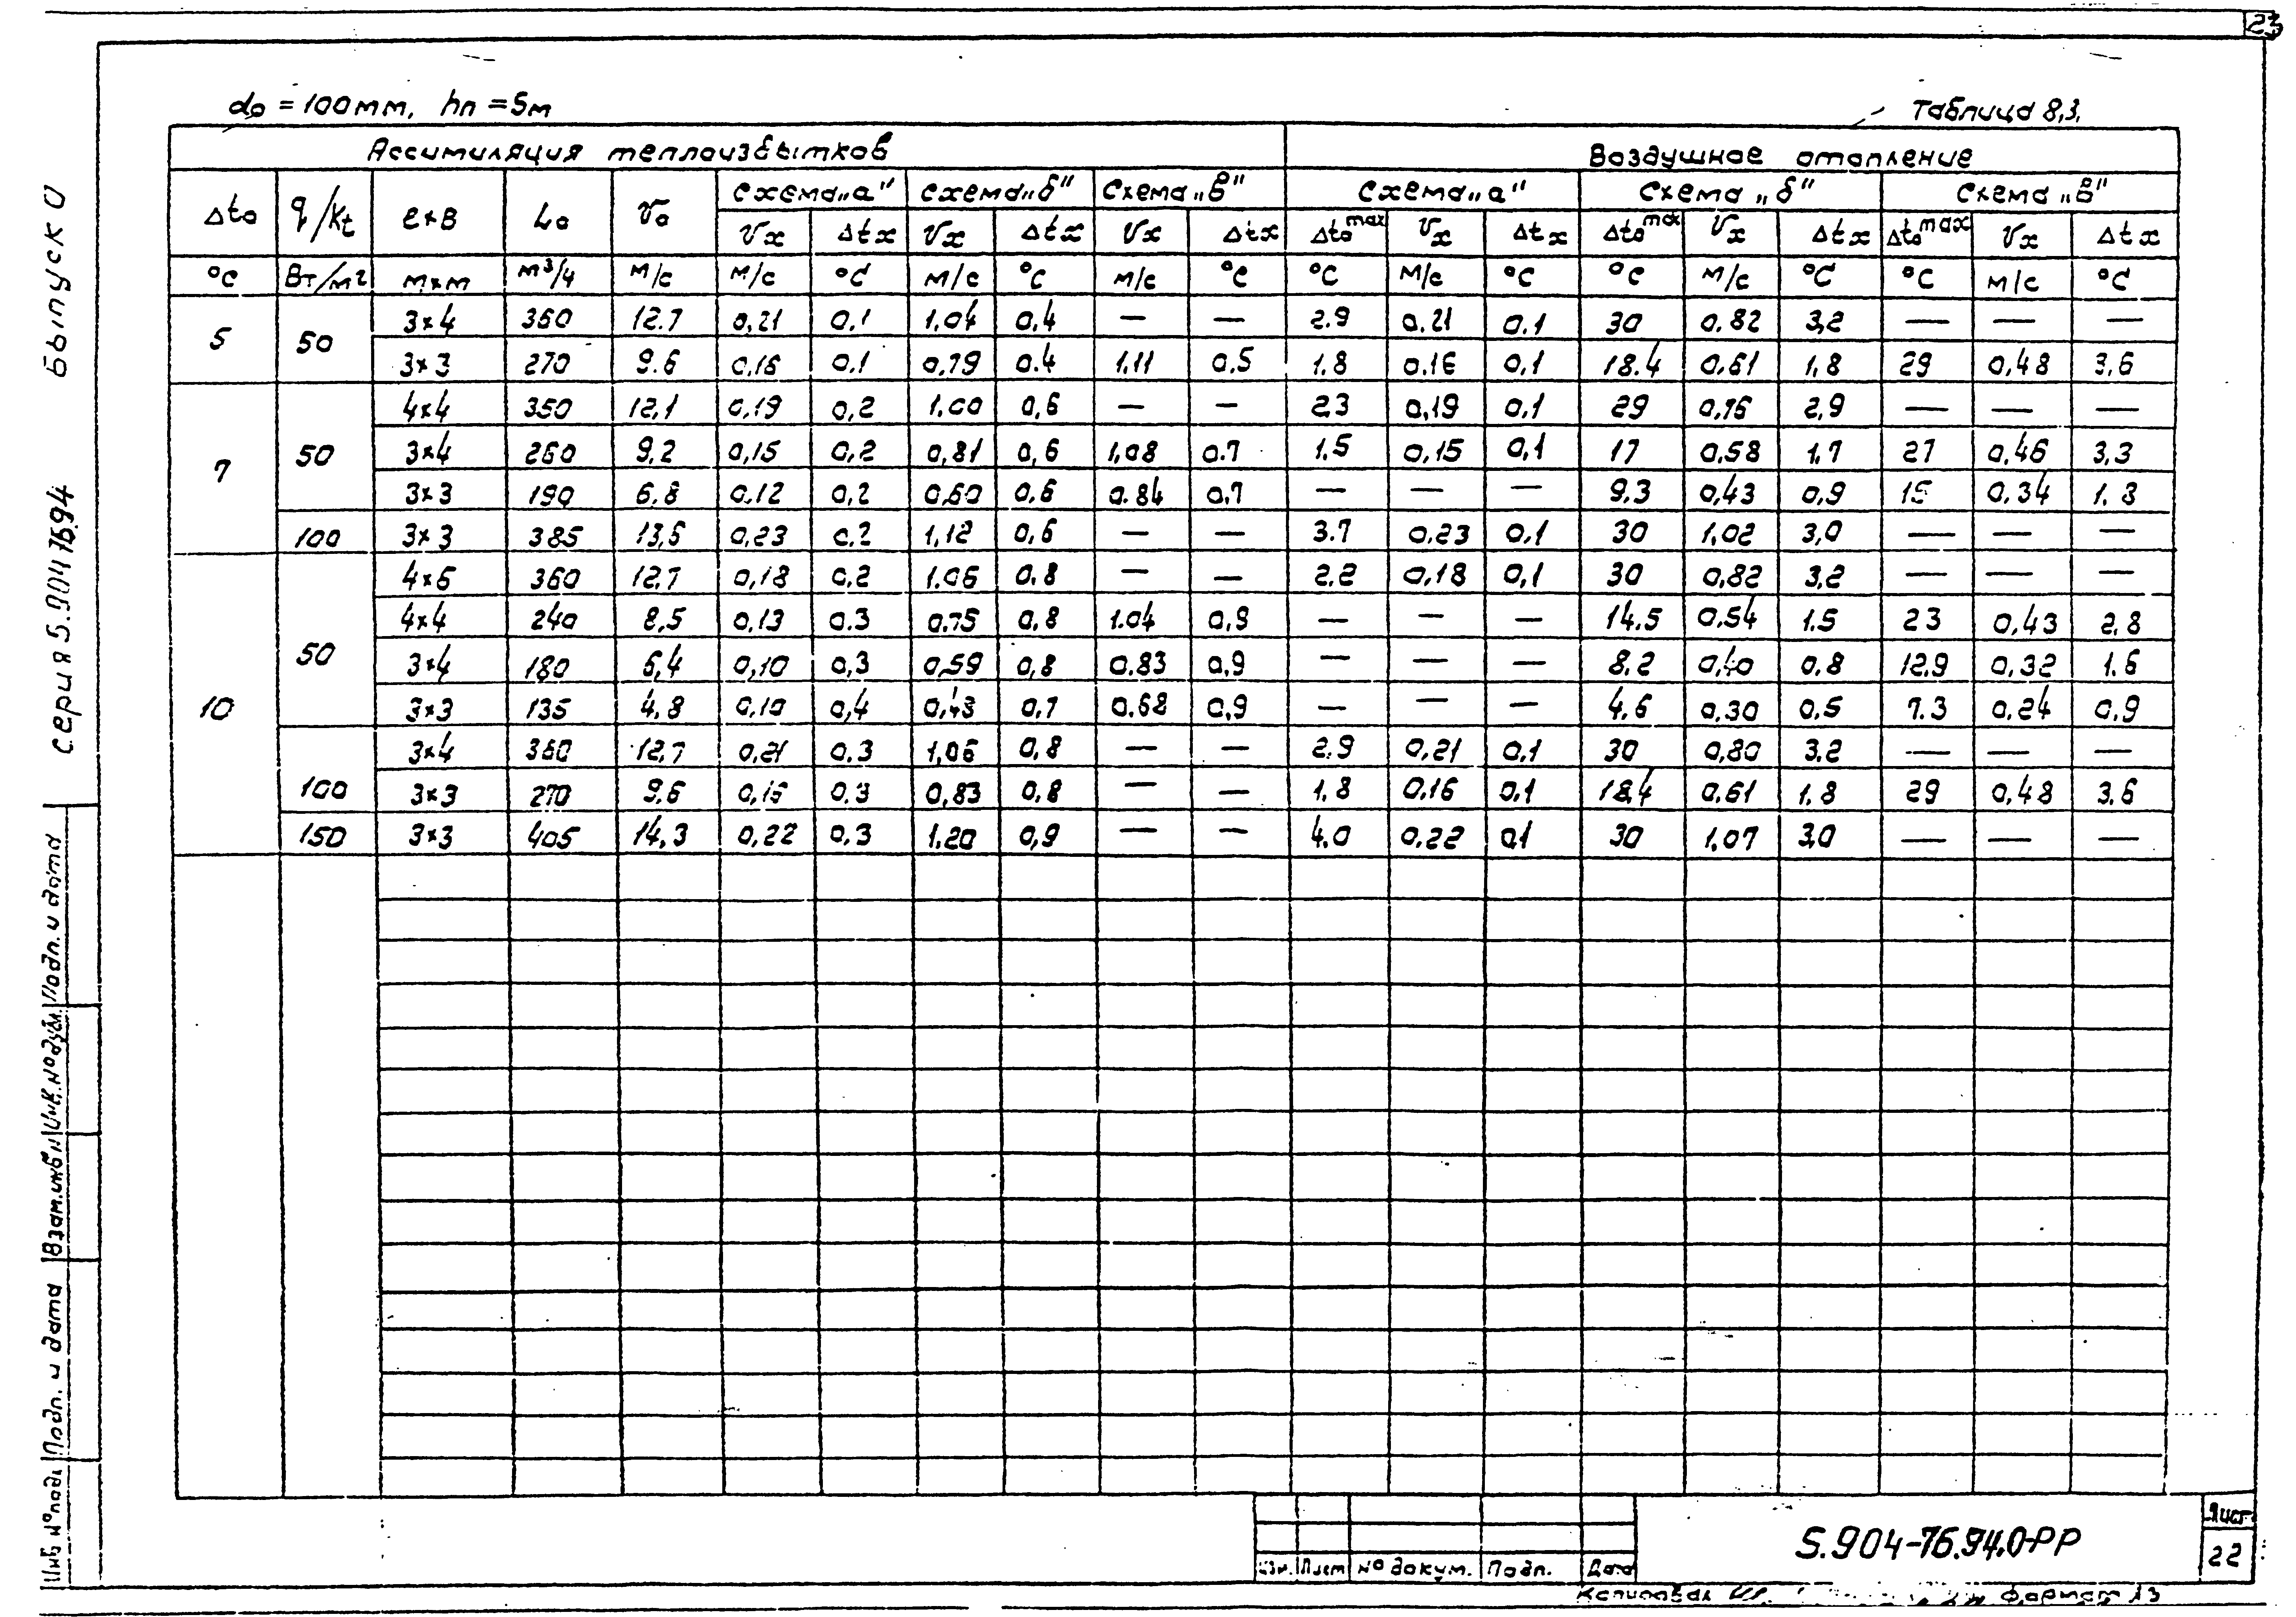 23
d₀ = 100мм, hп = 5м
Таблица 8.3.
Ассимиляция теплоизбытков | Воздушное отопление
Δt₀ | q/kt | ℓ×B | L₀ | v₀ | схема „а" | схема „б" | схема „в" | схема „а" | схема „б" | схема „в"
vx | Δtx | vx | Δtx | vx | Δtx | Δt₀max | vx | Δtx | Δt₀max | vx | Δtx | Δt₀max | vx | Δtx
°C | Вт/м² | м×м | м³/ч | м/с | м/с | °C | м/с | °C | м/с | °C | °C | м/с | °C | °C | м/с | °C | °C | м/с | °C
5 | 50 | 3×4 | 360 | 12.7 | 0,21 | 0.1 | 1,04 | 0,4 | — | — | 2.9 | 0.21 | 0.1 | 30 | 0.82 | 3,2 | — | — | —
3×3 | 270 | 9.6 | 0,16 | 0.1 | 0,79 | 0.4 | 1.11 | 0,5 | 1.8 | 0.16 | 0,1 | 18.4 | 0,61 | 1,8 | 29 | 0,48 | 3,6
7 | 50 | 4×4 | 350 | 12,1 | 0,19 | 0,2 | 1.00 | 0,6 | — | — | 2.3 | 0,19 | 0,1 | 29 | 0,76 | 2,9 | — | — | —
3×4 | 260 | 9,2 | 0,15 | 0,2 | 0,81 | 0,6 | 1,08 | 0.7 | 1.5 | 0,15 | 0,1 | 17 | 0.58 | 1.7 | 27 | 0,46 | 3,3
3×3 | 190 | 6.8 | 0.12 | 0,2 | 0,60 | 0,6 | 0.84 | 0,7 | — | — | — | 9.3 | 0,43 | 0,9 | 15 | 0.34 | 1.8
100 | 3×3 | 385 | 13,6 | 0,23 | 0.2 | 1,12 | 0,6 | — | — | 3.7 | 0,23 | 0,1 | 30 | 1,02 | 3,0 | — | — | —
10 | 50 | 4×6 | 360 | 12,7 | 0,18 | 0.2 | 1.06 | 0.8 | — | — | 2.2 | 0,18 | 0,1 | 30 | 0,82 | 3.2 | — | — | —
4×4 | 240 | 8,5 | 0,13 | 0.3 | 0.75 | 0,8 | 1.04 | 0,9 | — | — | — | 14.5 | 0.54 | 1.5 | 23 | 0,43 | 2,8
3×4 | 180 | 6,4 | 0,10 | 0,3 | 0,59 | 0,8 | 0.83 | 0,9 | — | — | — | 8.2 | 0,40 | 0.8 | 12.9 | 0,32 | 1.6
3×3 | 135 | 4,8 | 0,10 | 0,4 | 0,43 | 0,7 | 0.68 | 0,9 | — | — | — | 4.6 | 0,30 | 0,5 | 7.3 | 0,24 | 0,9
100 | 3×4 | 360 | 12,7 | 0,21 | 0.3 | 1,06 | 0,8 | — | — | 2.9 | 0,21 | 0,1 | 30 | 0,80 | 3.2 | — | — | —
3×3 | 270 | 9.6 | 0,16 | 0.3 | 0,83 | 0,8 | — | — | 1.8 | 0,16 | 0,1 | 18,4 | 0.61 | 1.8 | 29 | 0,48 | 3,6
150 | 3×3 | 405 | 14,3 | 0,22 | 0.3 | 1.20 | 0,9 | — | — | 4.0 | 0,22 | 0,1 | 30 | 1,07 | 3,0 | — | — | —
серия 5.904-76.94 Выпуск 0
Инв. № подл. Подп. и дата Взам. инв. № Инв. № дубл. Подп. и дата
Изм. Лист № докум. Подп. Дата
5.904-76.94.0-РР
Лист
22
Копировал
Формат А3